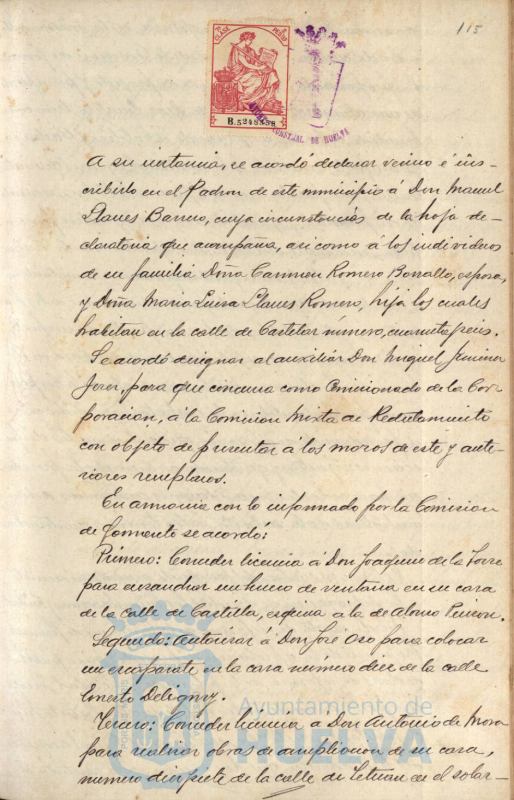 115
7ª CLASE
1 PESO
B.5249858
CONSEJAL DE HUELVA
A su instancia, se acordó declarar vecino é ins-
cribirlo en el Padron de este municipio á Don Manuel
Llanes Barrero, cuyas circunstancias de la hoja de-
claratoria que acompaña, asi como á los individuos
de su familia Doña Carmen Romero Borrallo, esposa,
y Doña Maria Luisa Llanes Romero, hija los cuales
habitan en la calle de Castelar número, cuarenta y seis.
Se acordó designar al auxiliar Don Miguel Jimenez
Jerez, para que concurra como Comisionado de la Cor-
poracion, á la Comision Mixta de Reclutamiento
con objeto de presentar á los mozos de este y ante-
riores reemplazos.
En armonia con lo informado por la Comision
de Fomento se acordo:
Primero: Conceder licencia á Don Joaquin de la Torre
para ensanchar un hueco de ventana en su casa
de la calle de Castilla, esquina á la de Alonso
Segundo: Autorizar á Don José Oso para colocar
un escaparate en la casa número diez de la calle
Ernesto Deligny.
Tercero: Conceder licencia á Don Antonio de Mora
para realizar obras de ampliacion de su casa,
numero diez y siete de la calle de Tetuan en el solar-
Ayuntamiento de
HUELVA